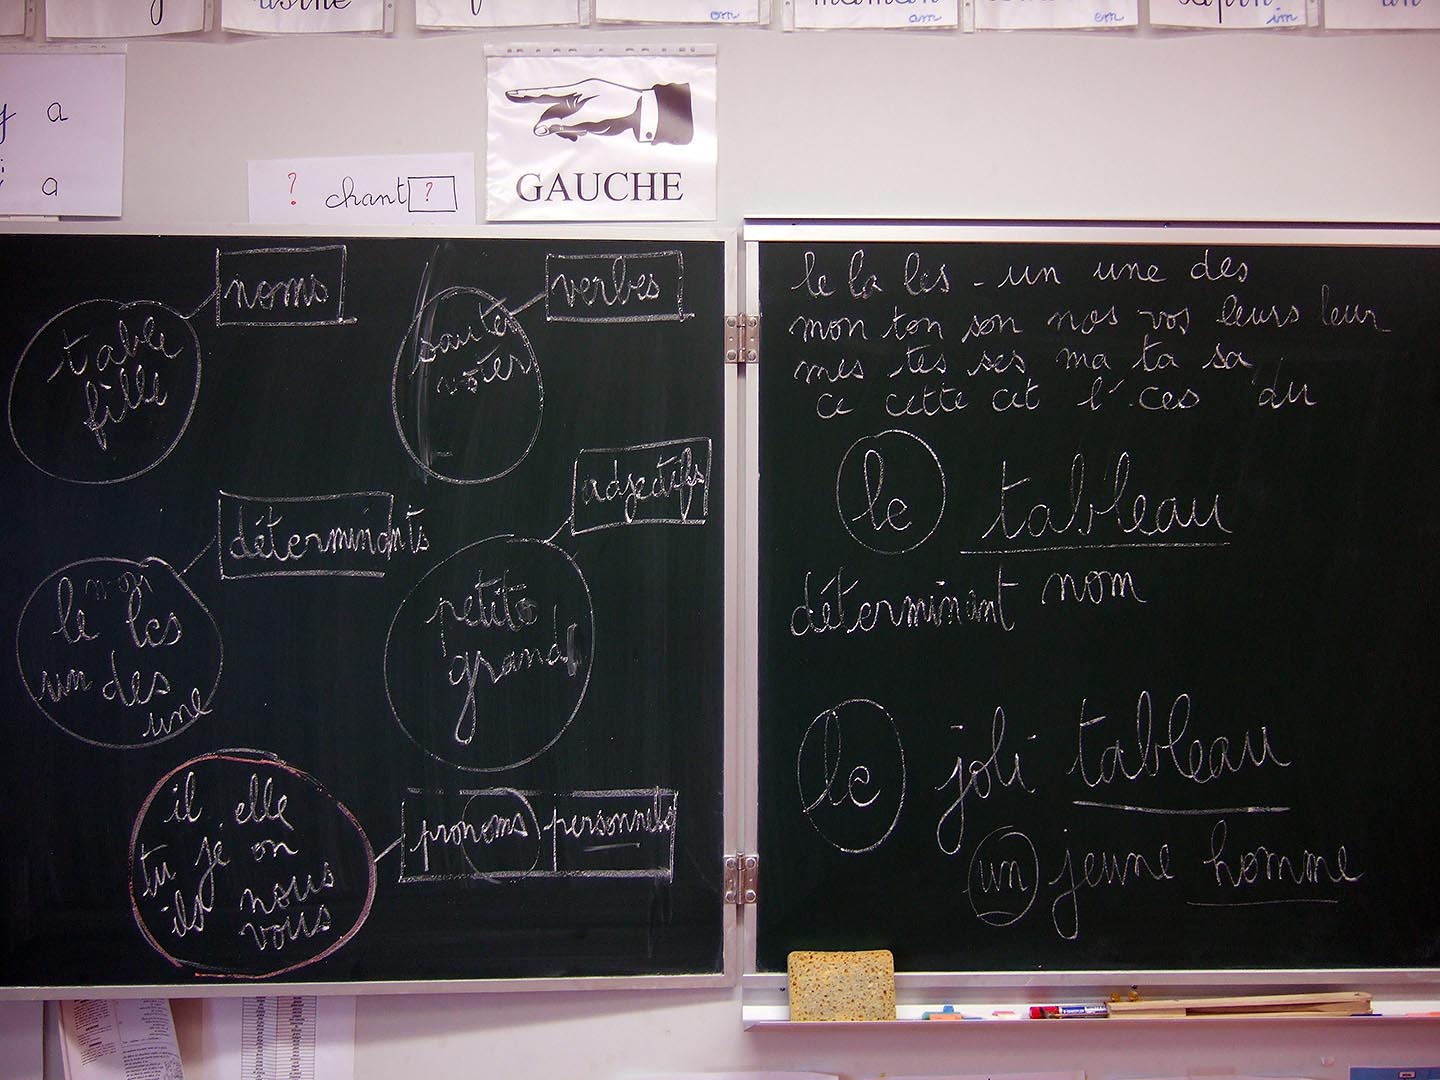 usine
om
maman
am
em
sapin
im
un
y a
a
? chant ?
GAUCHE
noms
table
fille
verbes
sauter
déterminants
mon
le les
un des
une
adjectifs
petite
grand
pronoms personnels
il elle
tu je on
ils nous
vous
le la les - un une des
mon ton son nos vos leurs leur
mes tes ses ma ta sa
ce cette cet l' ces du
le tableau
déterminant nom
le joli tableau
un jeune homme